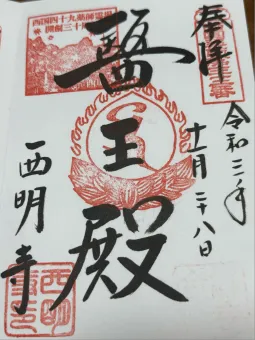 奉拝
令和三年
十一月二十八日
醫王殿
西明寺
西国四十九薬師霊場
開創三十周年
西明寺印